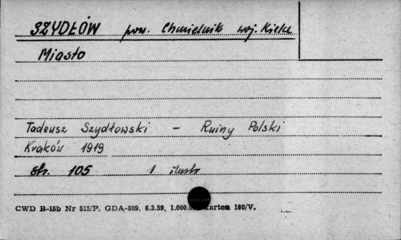 SZYDŁÓW pow. Chmielnik woj. Kielce
Miasto
Tadeusz Szydłowski – Ruiny Polski
Kraków 1919
str. 105 1 ilustr
CWD R-15b Nr 515/P, GDA-009, 6.3.59, 1.000.0 karton 180/V.